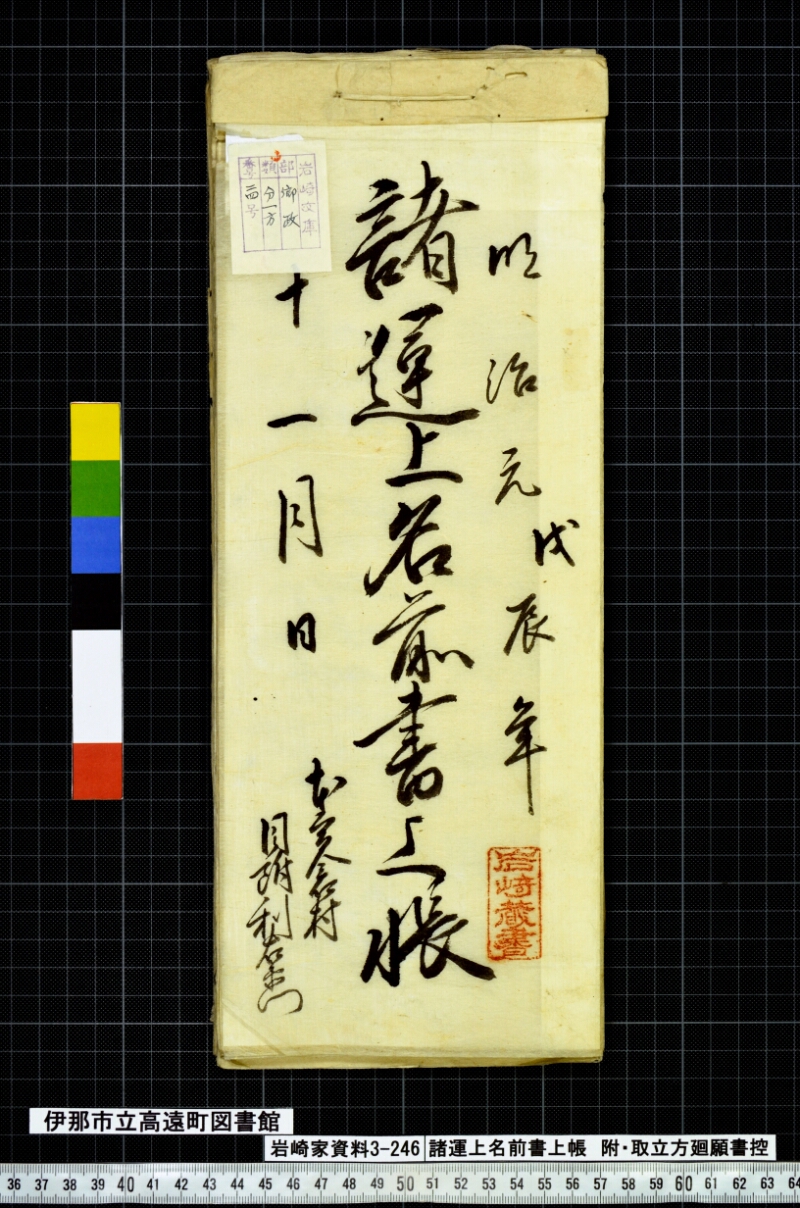 明治元
戊辰年
諸運上名前書上帳
十一月日
目附利右衛門
岩崎蔵書
岩崎文庫
部 御政
類 分一方
番
伊那市立高遠町図書館
岩崎家資料3-246 諸運上名前書上帳 附・取立方廻願書控
36 37 38 39 40 41 42 43 44 45 46 47 48 49 50 51 52 53 54 55 56 57 58 59 60 61 62 63 64